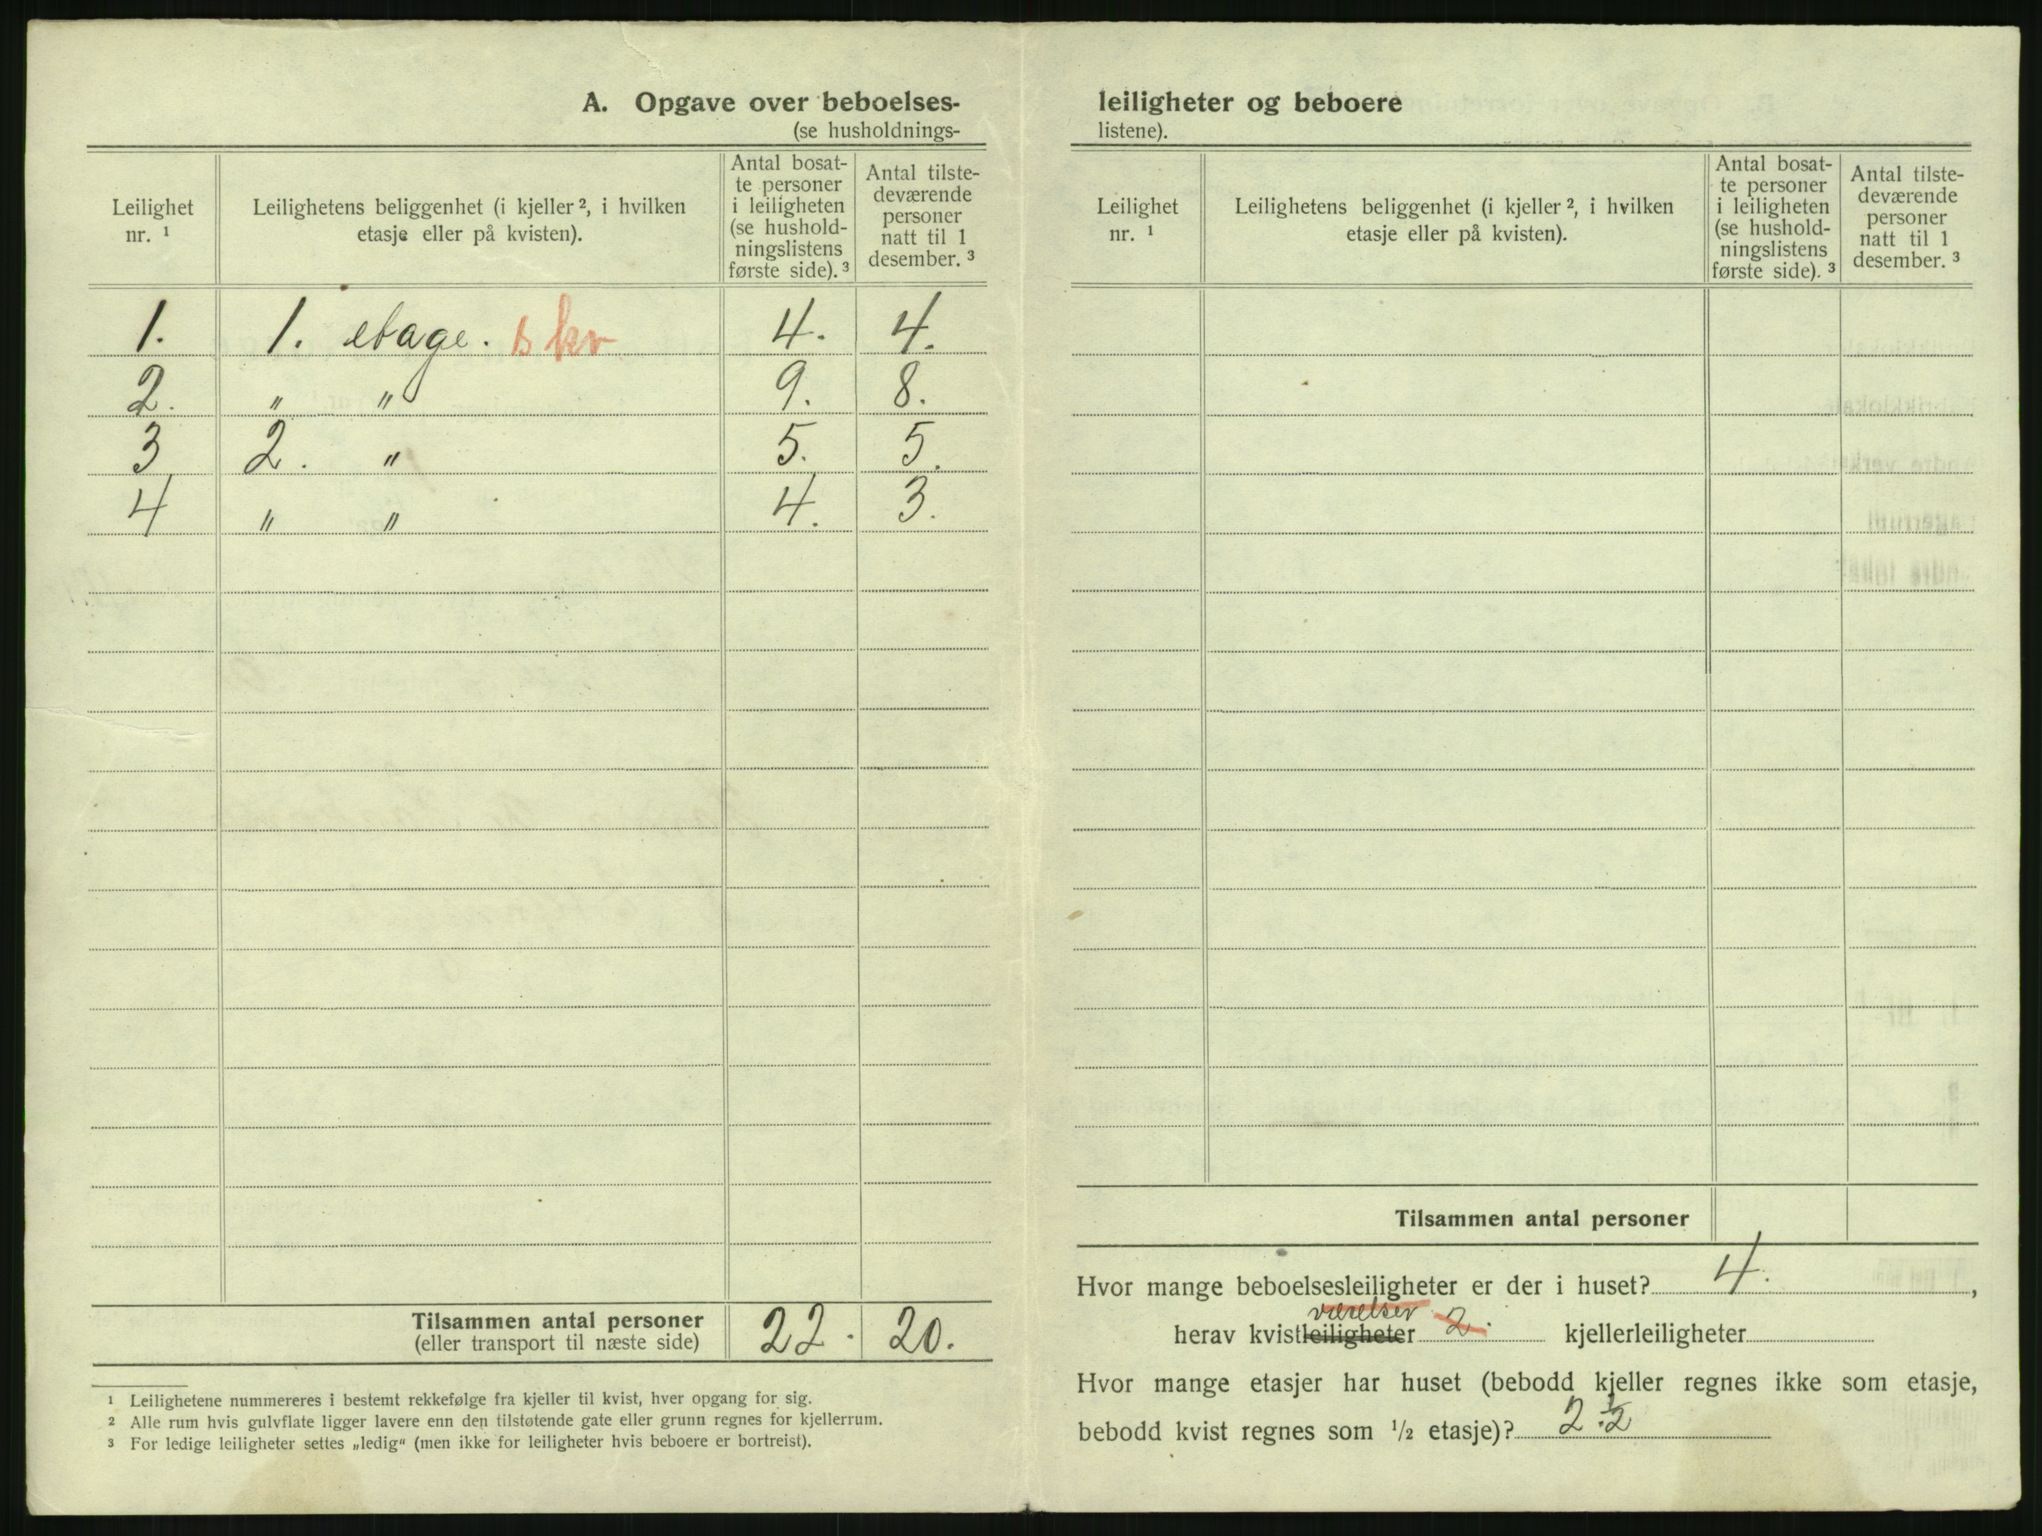 A. Opgave over beboelses-
(se husholdnings-
Leilighet nr. ¹
Leilighetens beliggenhet (i kjeller ², i hvilken etasje eller på kvisten).
Antal bosat-
te personer
i leiligheten
(se hushold-
ningslistens
første side). ³
Antal tilste-
deværende
personer
natt til 1
desember. ³
1. 1. etage. s kv 4. 4.
2. " " 9. 8.
3 2. " 5. 5.
4 " " 4. 3.
Tilsammen antal personer 22. 20.
(eller transport til næste side)
¹ Leilighetene nummereres i bestemt rekkefølge fra kjeller til kvist, hver opgang for sig.
² Alle rum hvis gulvflate ligger lavere enn den tilstøtende gate eller grunn regnes for kjellerrum.
³ For ledige leiligheter settes „ledig“ (men ikke for leiligheter hvis beboere er bortreist).
leiligheter og beboere
listene).
Leilighet nr. ¹
Leilighetens beliggenhet (i kjeller ², i hvilken etasje eller på kvisten).
Antal bosat-
te personer
i leiligheten
(se hushold-
ningslistens
første side). ³
Antal tilste-
deværende
personer
natt til 1
desember. ³
Tilsammen antal personer
Hvor mange beboelsesleiligheter er der i huset? 4. ,
værelser
herav kvistleiligheter 2. kjellerleiligheter
Hvor mange etasjer har huset (bebodd kjeller regnes ikke som etasje,
bebodd kvist regnes som ½ etasje)? 2.½